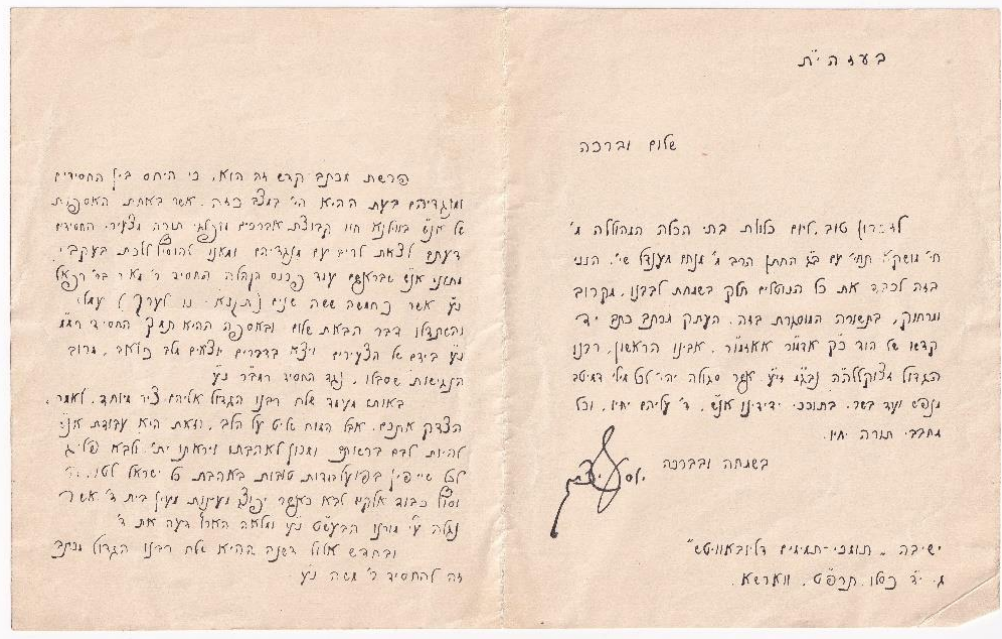 בעזה״ת
שלום וברכה
לזכרון טוב, ליום כלולת בתי הכלה המהוללה מ׳
חי׳ מושקא תחי׳ עם ב״ג החתן הרב מ׳ מנחם מענדל שי׳. הנני
בזה לכבד את כל הנוטלים חלק בשמחת לבבנו, מקרוב
ומרחוק, בתשורה המוסגרת בזה. העתק מכתב כתב יד
קדשו של הוד כ״ק אדמו״ר אאזמו״ר, אבינו הראשון, רבנו
הגדול זצוקללה״ה נבג״מ זי״ע אשר סגולה יהי׳ לכל מילי דמיטב
מנפש ועד בשר, בתוככי ידידינו אנ״ש, ד׳ עליהם יחיו, וכל
מחבבי תורה יחיו.
בשמחה ובברכה
יוסף יצחק
ישיבה ״תומכי-תמימים דליובאוויטש״
ג׳ י״ד כסלו, תרפ״ט, ווארשא.
פרשת מכתב קדש זה הוא, כי היחס בין החסידים
ומנגדיהם בעת ההיא הי׳ במצב כזה, אשר באחת האספות
של אנ״ש בווילנא חוו קבוצת אברכים מופלגי תורה מצעירי החסידים
דעתם לצאת לריב עם מנגדיהם ומאנו להוסיף ללכת בעקבי
מתוני אנ״ש שבראשם עמד פרנס הקהלה החסיד ר׳ מאיר בר׳ רפאל
נ״ע אשר כחמשה ששה שנים
והשתדלו דבר הבאת שלום ובאספה ההיא תמך החסיד
נ״ע בידם של הצעירים ויצא בדברים יוצאים מלב כואב, מרוב
הנגישות שסבלו, נגד החסיד נ״ע
באותו מעמד שלח רבנו הגדול אליהם ציר מיוחד, לאמר,
הצדק אתכם, אבל המוח שליט על הלב, וזאת היא עבודת אנ״ש
להיות לבם ברשותם ומכון לאהבתו ויראתו ית׳, ולבא
לכל טובות באהבת כל ישראל
כבוד אלקים לבא כאשר יפוצו מעינות מעין בית ד׳ אשר
נגלה ע״י מורנו הבעש״ט נ״ע ומלאה הארץ דעה את ד׳
ובחדש אלול דשנה ההיא שלח רבנו הגדול מכתב
זה להחסיד ר׳ משה נ״ע.